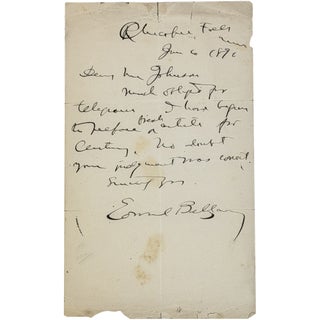 Chicopee Falls
Mass
Jan 6 1890
Dear Mr Johnson
much obliged for
telegram I have begun
to prepare fresh article for
Century. No doubt
your judgment was correct.
Sincerely yrs.
Edward Bellamy